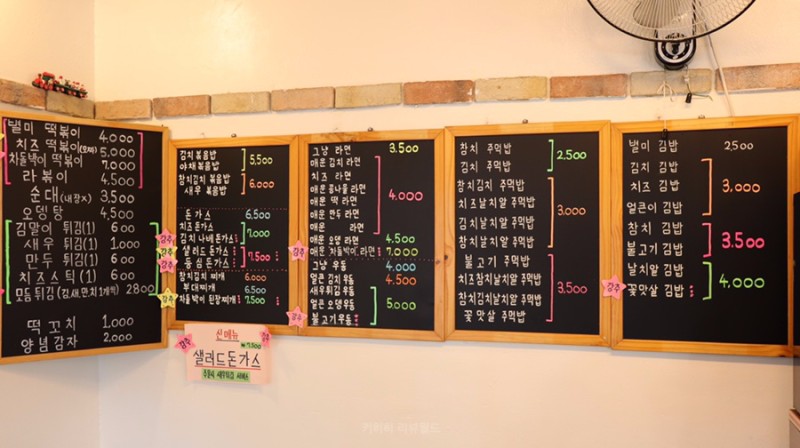 별미 떡볶이 4,000
치즈 떡볶이(모짜) 5,000
차돌박이 떡볶이 7,000
라볶이 4,500
순대(내장X) 3,500
오뎅탕 4,500
김말이 튀김(1) 600
새우 튀김(1) 1,000
만두 튀김(1) 600
치즈스틱(1) 600
모듬튀김(김,새,만,치 1개씩) 2800
떡꼬치 1,000
양념감자 2,000
강추
김치볶음밥
야채 볶음밥
5,500
참치김치 볶음밥
새우 볶음밥
6,000
돈가스 6,500
치즈돈가스
김치나베돈가스
7,000
샐러드돈가스
등심돈가스
7,500
참치김치찌개 6,000
부대찌개 6,500
차돌박이 된장찌개 7,500
신메뉴
₩7,500
샐러드돈가스
강추
그냥 라면 3,500
매운 김치 라면
치즈 라면
매운 콩나물 라면
매운 떡 라면
매운 만두 라면
4,000
매운 오뎅 라면 4,500
매운 차돌박이 라면 7,000
그냥 우동 4,000
김치우동 4,500
새우튀김우동
얼큰 오뎅우동
불고기우동
5,000
강추
참치 주먹밥
김치 주먹밥
2,500
참치김치 주먹밥
치즈날치알 주먹밥
김치날치알 주먹밥
참치날치알 주먹밥
3,000
불고기 주먹밥
치즈참치날치알 주먹밥
참치김치날치알 주먹밥
꽃맛살 주먹밥
3,500
별미 김밥 2,500
김치 김밥
치즈 김밥
얼큰이 김밥
3,000
참치 김밥
불고기 김밥
3,500
날치알 김밥
꽃맛살 김밥
4,000
강추